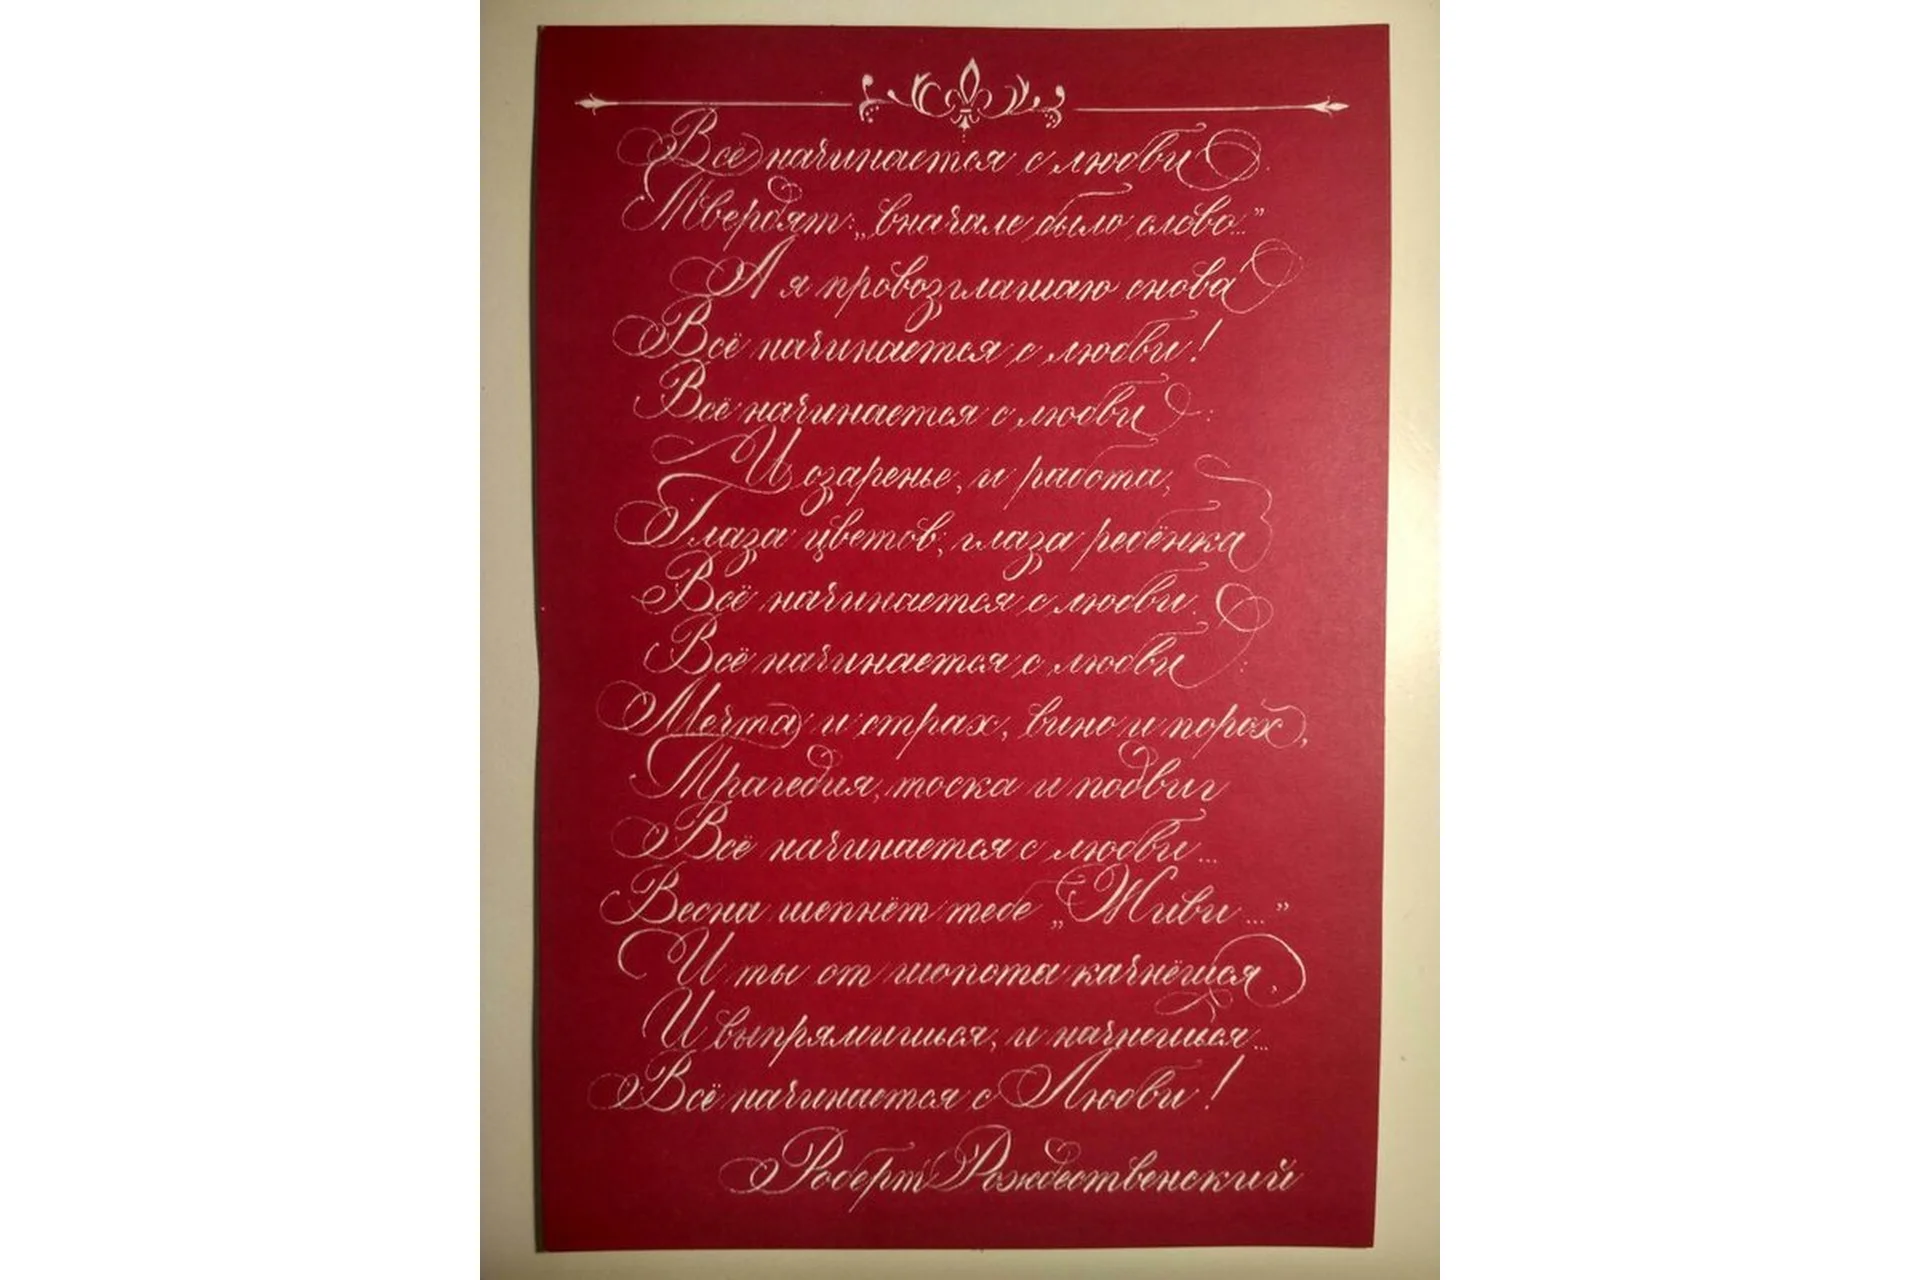 Всё начинается с любви.
Твердят: „вначале было слово..."
А я провозглашаю снова
Всё начинается с любви!
Всё начинается с любви:
И озаренье, и работа,
Глаза цветов, глаза ребёнка
Всё начинается с любви.
Всё начинается с любви:
Мечта и страх, вино и порох,
Трагедия, тоска и подвиг
Всё начинается с любви...
Весна шепнёт тебе „Живи..."
И ты от шопота качнёшся,
И выпрямишься, и начнешься...
Всё начинается с Любви!
Роберт Рождественский